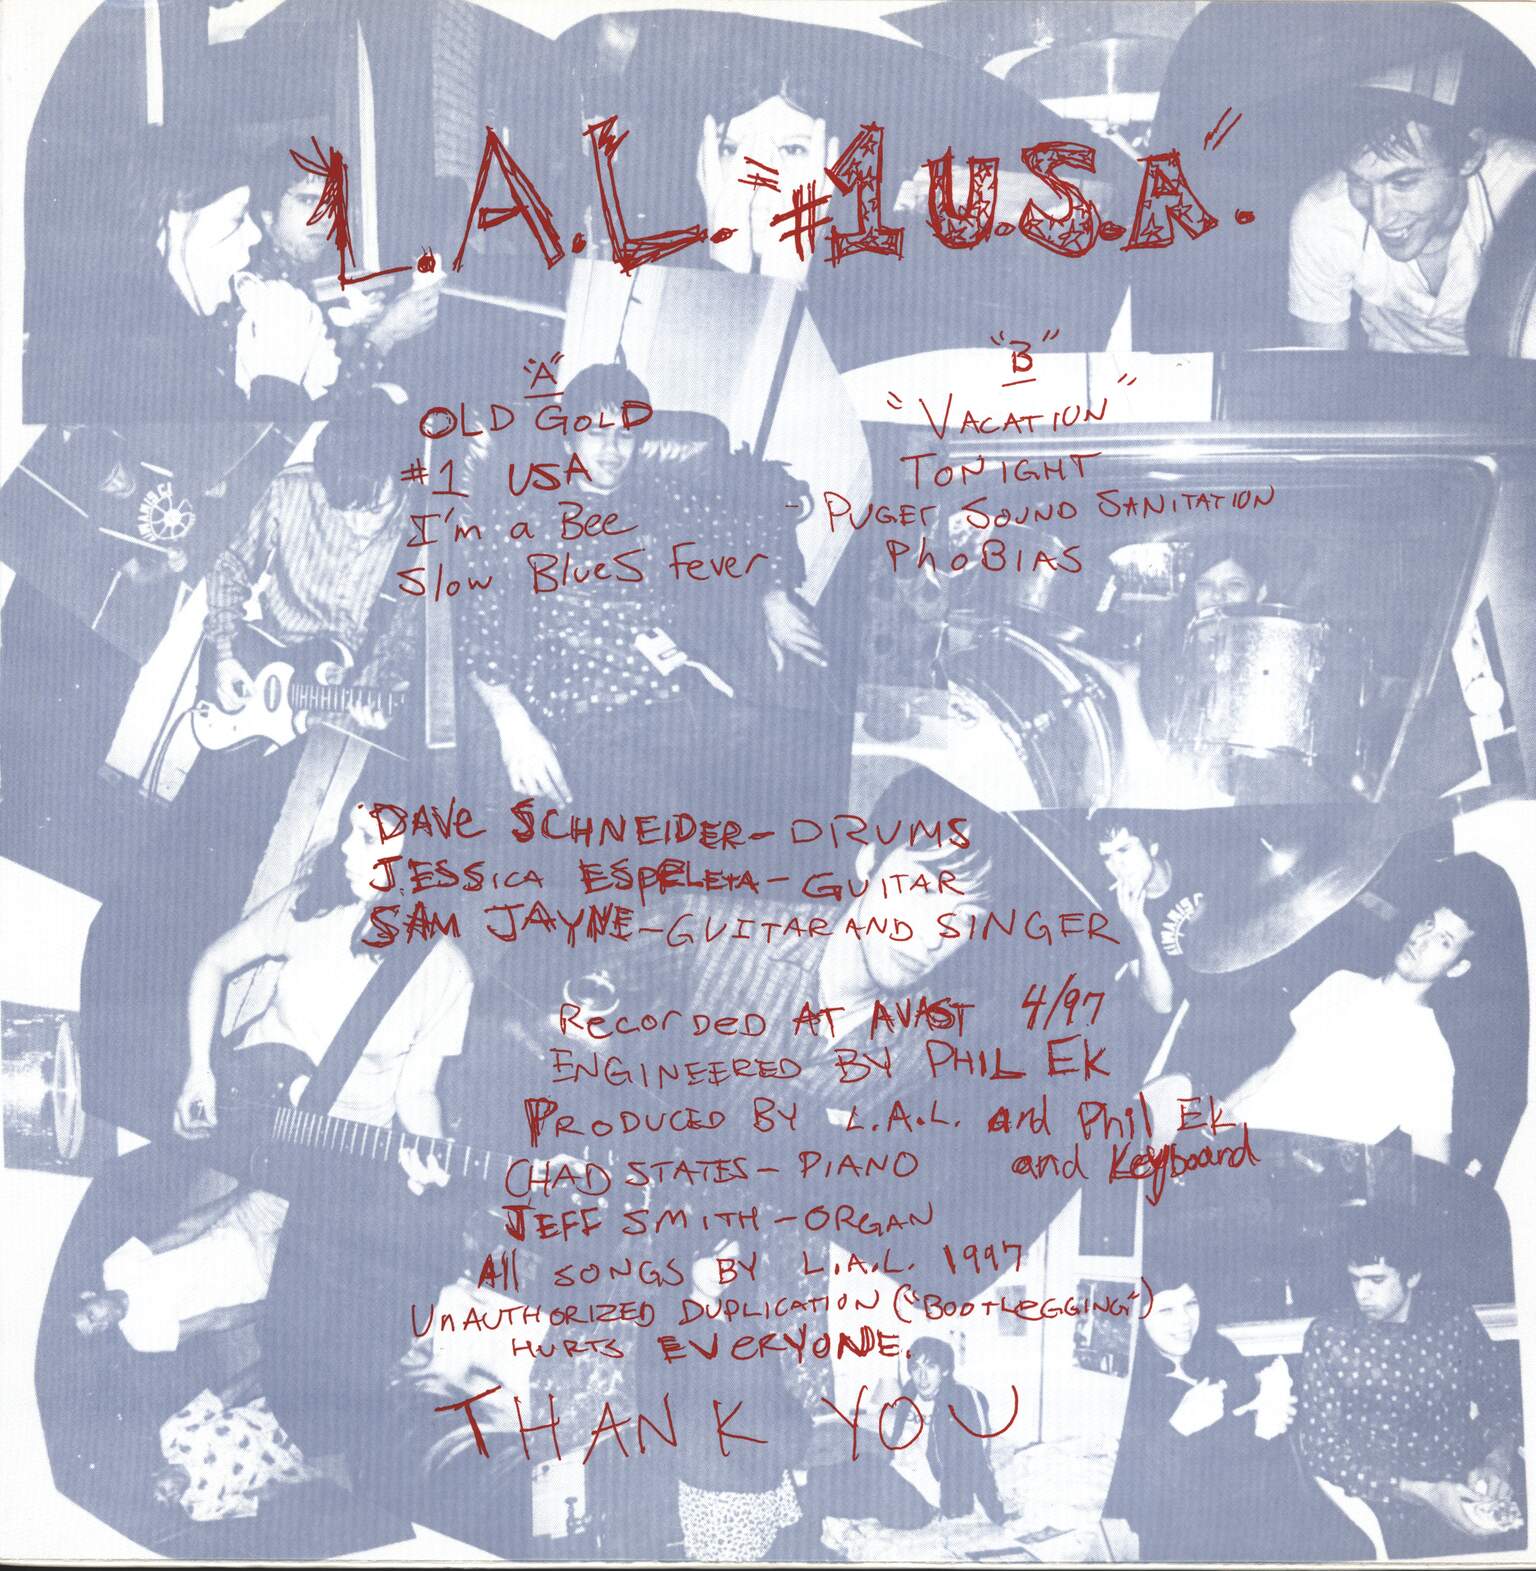 "L.A.L. = #1 U.S.A."
"A"
OLD GOLD
#1 USA
I'm a Bee
Slow BlueS Fever
"B"
"VACATION"
TONIGHT
- PUGET SOUND SANITATION
PhoBIAS
DAVe SCHNEIDER - DRUMS
JESSICA ESPELETA - GUITAR
SAM JAYNE - GUITAR AND SINGER
Recorded AT AVAST 4/97
ENGINEERED BY PHIL EK
PRODUCED BY L.A.L. and Phil EK
CHAD STATES - PIANO and Keyboard
JEFF SMITH - ORGAN
All SONGS BY L.A.L. 1997
UnAUTHORIZED DUPLICATION ("BOOTLEGGING")
HURTS EVeRYONE.
THANK YOU